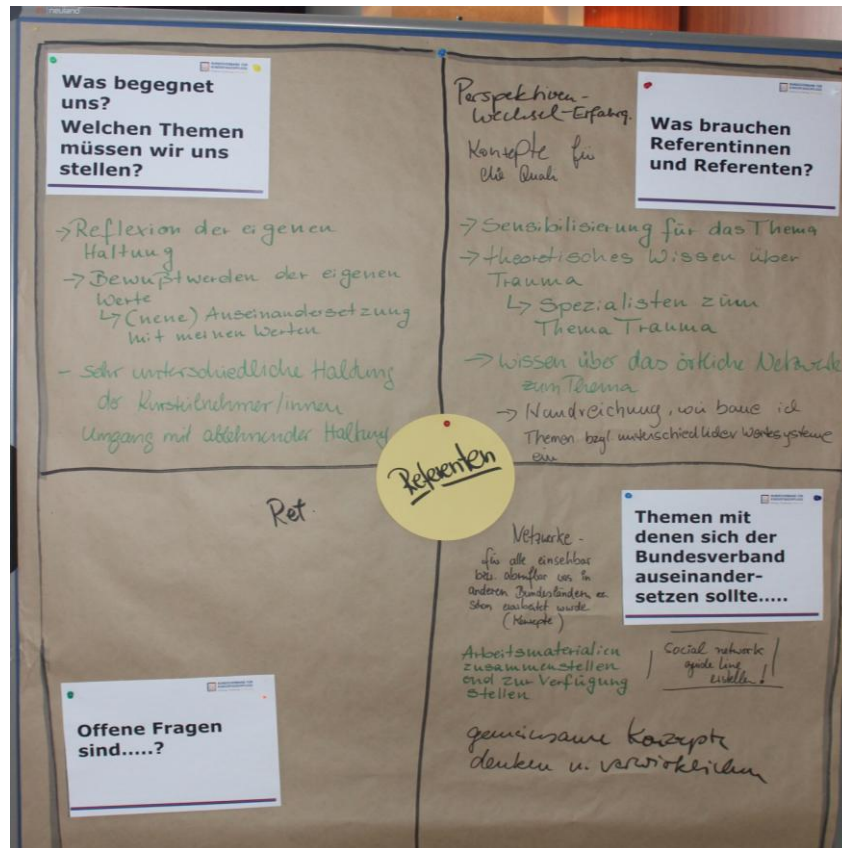 neuland
Was begegnet
uns?
Welchen Themen
müssen wir uns
stellen?
→ Reflexion der eigenen
Haltung
→ Bewußtwerden der eigenen
Werte
↳ (neue) Auseinandersetzung
mit meinen Werten
- sehr unterschiedliche Haldung
der Kursteilnehmer/innen
Umgang mit ablehnender Haltung
Perspektiven-
wechsel-Erfahrg.
Konzepte für
die Quali
Was brauchen
Referentinnen
und Referenten?
→ Sensibilisierung für das Thema
→ theoretisches Wissen über
Trauma
↳ Spezialisten zum
Thema Trauma
→ Wissen über das örtliche Netzwerk
zum Thema
→ Handreichung, wie baue ich
Themen bzgl. unterschiedlicher Wertesysteme
ein
Referenten
Ret.
Offene Fragen
sind.....?
Netzwerke -
für alle einsehbar
bzw. abrufbar was in
anderen Bundesländern
schon erarbeitet wurde
(Konzepte)
Themen mit
denen sich der
Bundesverband
auseinander-
setzen sollte.....
Arbeitsmaterialien
zusammenstellen
und zur Verfügung
stellen
Social network
guide line
erstellen!
gemeinsame Konzepte
denken u. verwirklichen